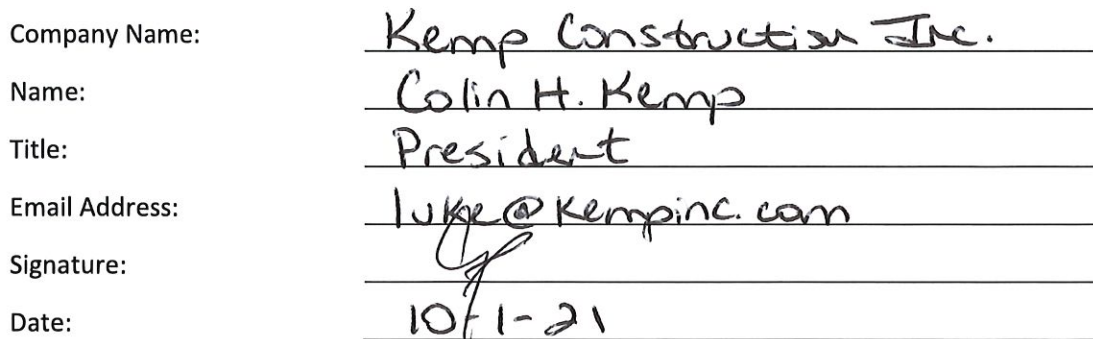 Company Name: Kemp Construction Inc.
Name: Colin H. Kemp
Title: President
Email Address: luke@kempinc.com
Signature:
Date: 10-1-21